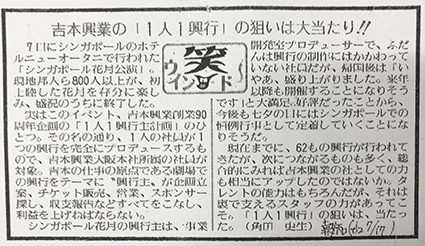 吉本興業の「1人1興行」の狙いは大当たり!!
7日にシンガポールのホテ
ルニューオータニで行われた
「シンガポール花月公演」。
現地邦人ら800人以上が、初
上陸した花月を存分に楽し
み、盛況のうちに終了した。
実はこのイベント、吉本興業創業90
周年企画の「1人1興行主計画」のひ
とつ。その名の通り、1人の社員が1
つの興行を完全にプロデュースするも
ので、吉本興業大阪本社所属の社員が
対象。吉本の仕事の原点である劇場で
の興行をテーマに〝興行主〟が企画立
案、チケット販売、営業、スポンサー
探し、収支報告などすべてをこなし、
利益を上げねばならない。
シンガポール花月の興行主は、事業
笑の
ウインドー
開発室プロデューサーで、ふだ
んは興行の制作にはかかわって
いない社員だが、帰国後は「い
やあ、盛り上がりました。来年
以降も開催することになりそう
です」と大満足。好評だったことから、
今後も七夕の日にはシンガポールでの
恒例行事として定着していくことにな
りそうだ。
現在までに、62もの興行が行われて
きたが、次につながるものも多く、総
合的にみれば吉本興業の社としての力
も相当にアップしたのではないか。タ
レントの能力はもちろんだが、それを
裏で支えるスタッフの力があってこ
そ。「1人1興行」の狙いは、当たっ
た。(角田 史生)